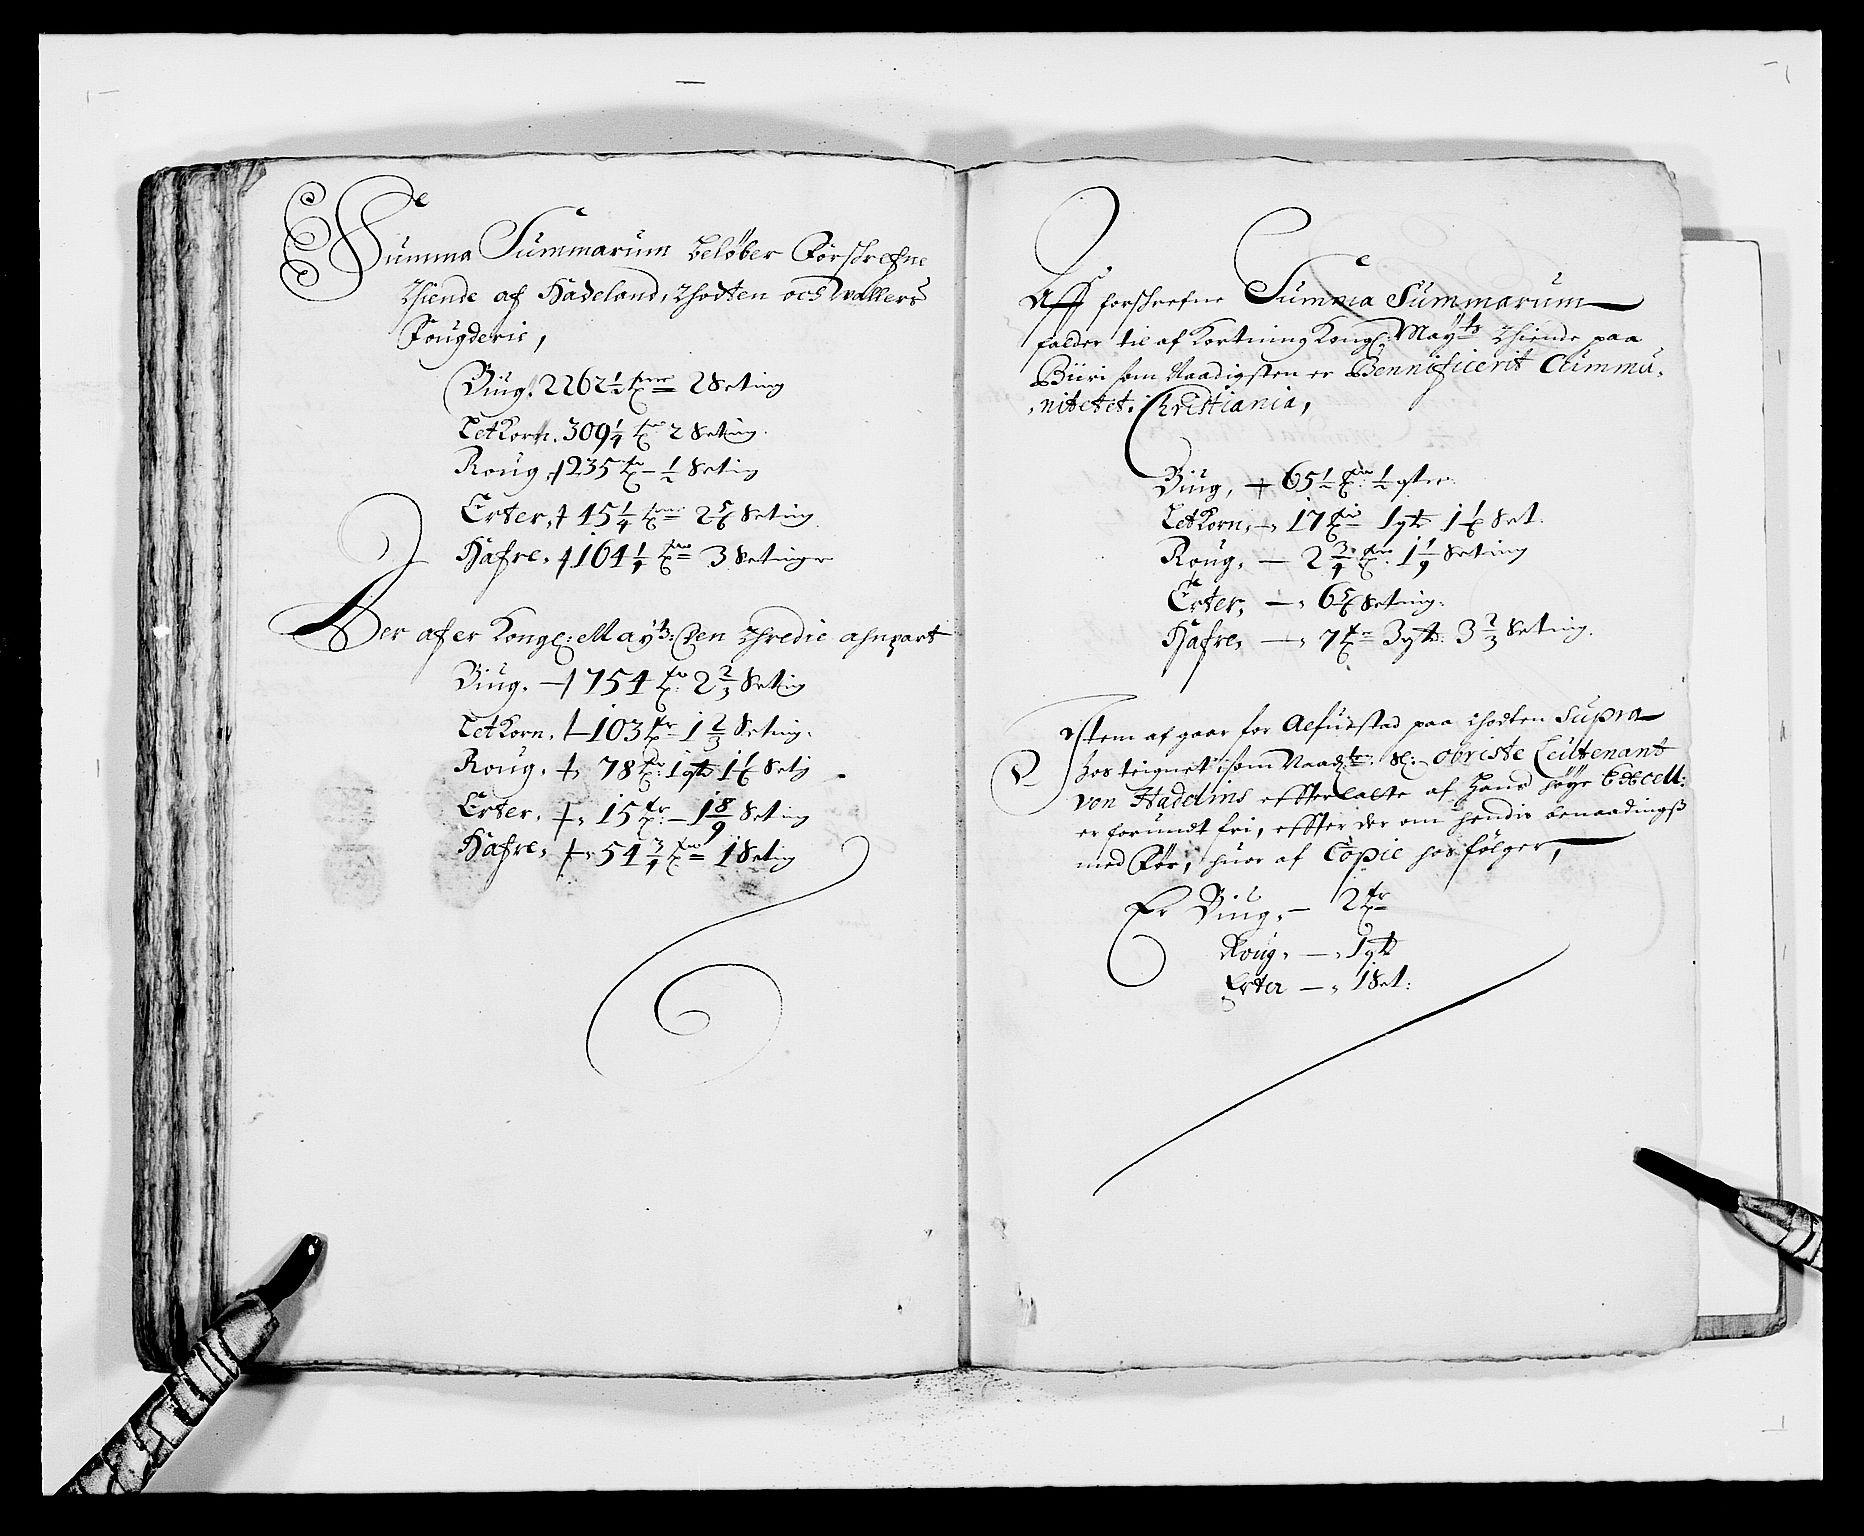 Summa Summarum beløber Førschrefne
Thiende af Hadeland, Thodten och Wallers
Fougderie,
Biug. 2262½ tr 2 Seting
Letkorn. 309¼ tr 2 Seting.
Roug. 235 tr ½ Setig
Erter, 45¼ tr 2⅚ Seting
Hafre. 164¼ tr 3 Setinger
Der af er Kongl: May:ts: Den Thredie anpart
Biug. — 754 tr: 2⅔ Setig
Letkorn. 103 tr 1⅔ Seting.
Roug. 78 tr: 1 qtr 1⅙ Setg
Erter. 15 tr: — 1 8/9 Seting
Hafre, 54¾ tr 1 Setig
Aff forschrefne Summa Summarum
falder til af Kortning Kongl: May:ts Thiende paa
Biiri som Naadigsten er Bennificerit Cummu,
,nitetet. Christiania,
Biug, 65½ tr: ½ qter.
Letkorn, — 17 tr 1 qtr 1⅙ Set.
Roug. — 2¾ tr. 1 1/9 Seting
Erter, — 6⅚ Seting.
Hafre, — 7 tr 3 qtr: 3⅔ Seting.
Item af gaar for Alfuestad paa Thodten Supra
hos teignet, som Naadl: Sl: Obriste Leutenant
von Hadelins effterlatte af hans høye Excell:
er forundt fri, effter der om hendis benaadingß
med Før, huor af Copie hos følger,
Er Biug. — 2 tr
Roug. — 1 qtr
Erter — 1 Set: